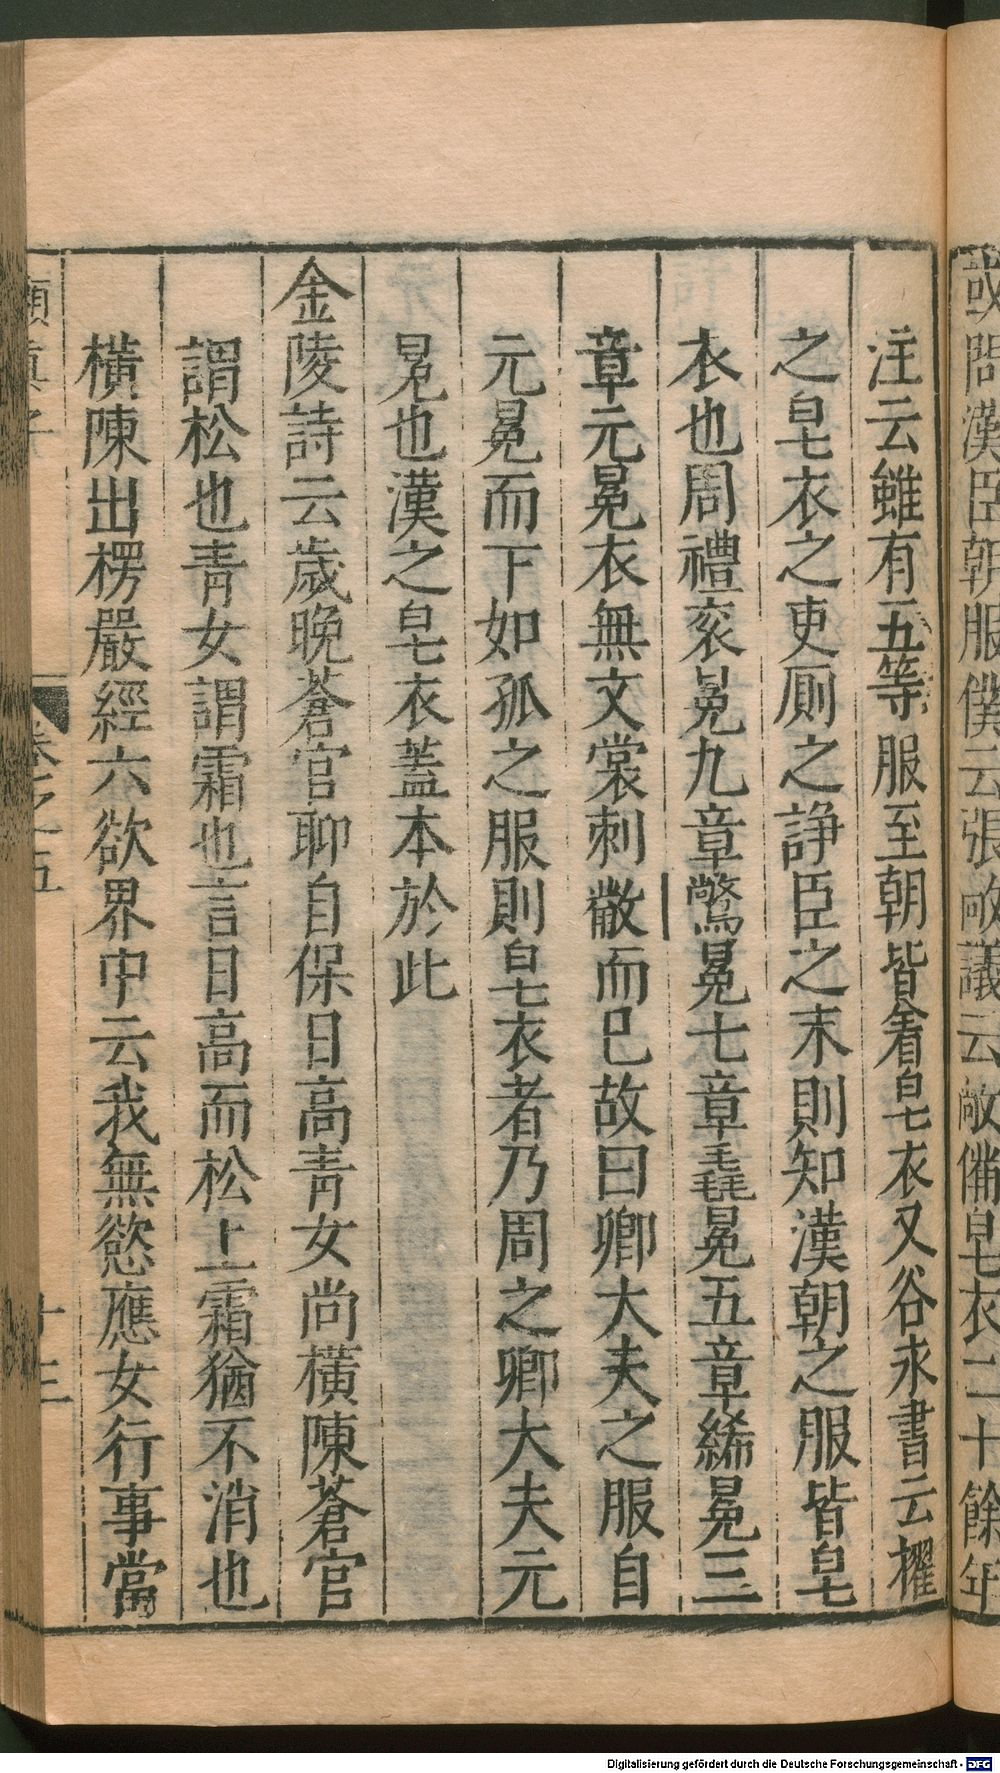 或問漢臣朝服僕云張敞議云敞備皁衣二十餘年
注云雖有五等服至朝皆着皁衣又谷永書云擢
之皁衣之吏厠之諍臣之末則知漢朝之服皆皁
衣也周禮衮冕九章鷩冕七章毳冕五章絺冕三
章元冕衣無文裳刺黻而已故曰卿大夫之服自
元冕而下如孤之服則皁衣者乃周之卿大夫元
冕也漢之皁衣蓋本於此
金陵詩云歲晚蒼官聊自保日高青女尚橫陳蒼官
謂松也青女謂霜也言日高而松上霜猶不消也
橫陳出楞嚴經六欲界中云我無慾應女行事當
卷之五
十三
Digitalisierung gefördert durch die Deutsche Forschungsgemeinschaft - DFG